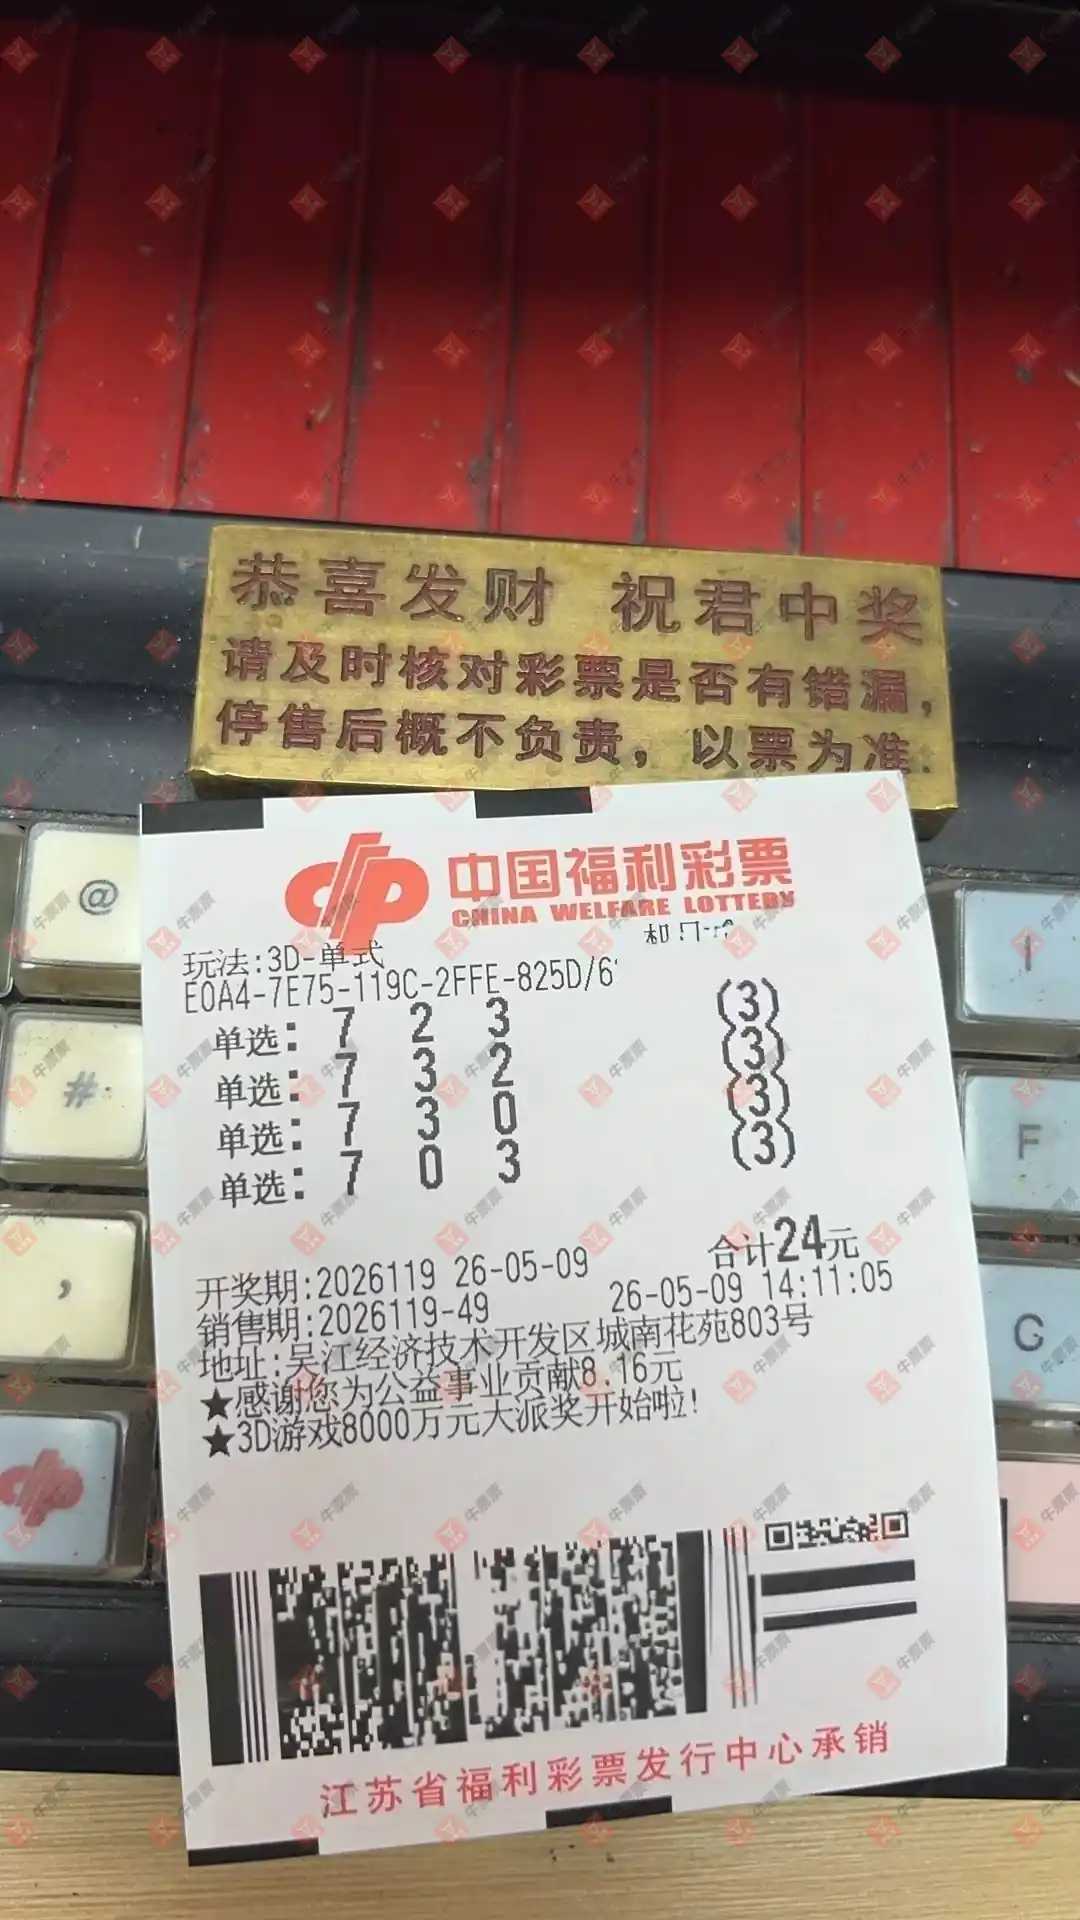 恭喜发财 祝君中奖
请及时核对彩票是否有错漏,
停售后概不负责，以票为准.
中国福利彩票
CHINA WELFARE LOTTERY
玩法:3D-单式
E0A4-7E75-119C-2FFE-825D/6
单选: 7 2 3 (3)
单选: 7 3 2 (3)
单选: 7 3 0 (3)
单选: 7 0 3 (3)
合计24元
开奖期:2026119 26-05-09
销售期:2026119-49 26-05-09 14:11:05
地址:吴江经济技术开发区城南花苑803号
★感谢您为公益事业贡献8.16元
★3D游戏8000万元大派奖开始啦!
江苏省福利彩票发行中心承销
@
#
,
I
F
G
牛票票